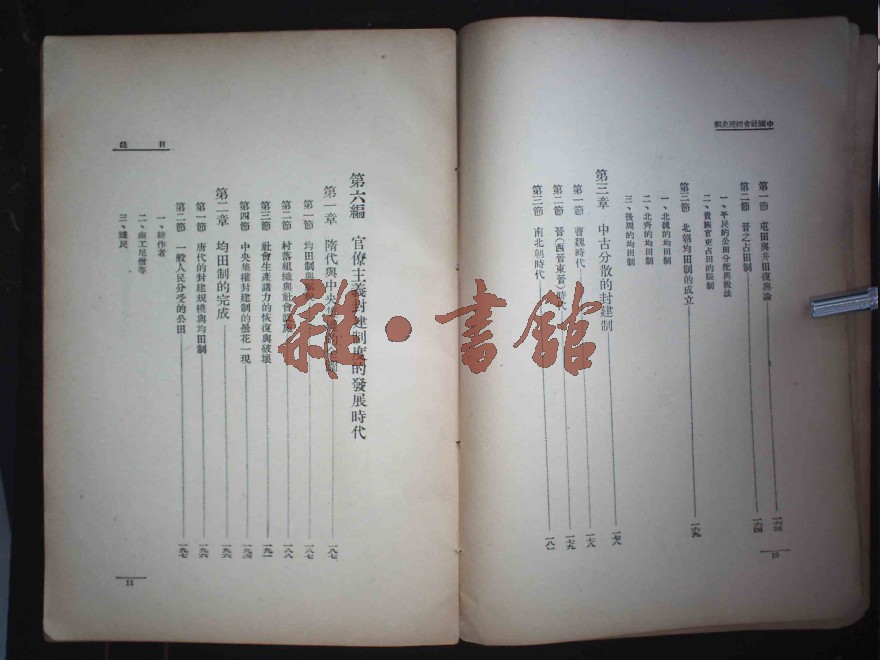 中國社會經濟史綱
第一節 屯田與井田復興論 一六四
第二節 晉之占田制 一六四
一、平民的公田分配與稅法
二、貴族官吏占田的限制
第三節 北朝均田制的成立 一六九
一、北魏的均田制
二、北齊的均田制
三、後周的均田制
第三章 中古分散的封建制 一七八
第一節 曹魏時代 一七八
第二節 晉(西晉東晉)時代 一七九
第三節 南北朝時代 一八〇
10
目錄
第六編 官僚主義封建制度的發展時代
第一章 隋代與中央 一八七
第一節 均田制 一八七
第二節 村落組織與社會 一八八
第三節 社會生產諸力的恢復與破壞 一九一
第四節 中央集權封建制的曇花一現 一九四
第二章 均田制的完成 一九六
第一節 唐代的封建規模與均田制 一九六
第二節 一般人民分受的公田 一九七
一、耕作者
二、商工尼僧等
三、賤民
11
雜·書館